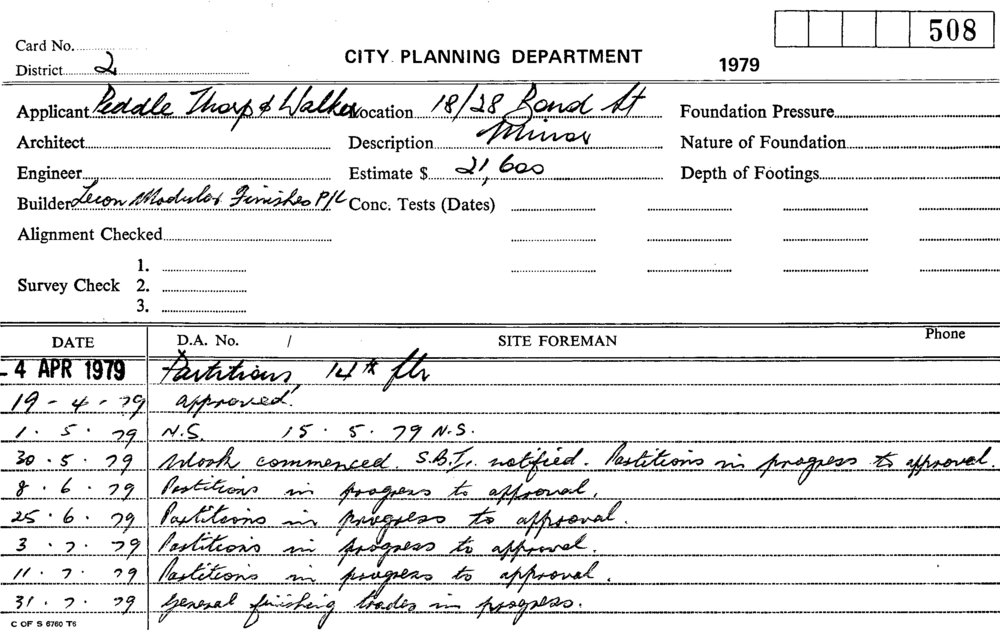 508
Card No.
CITY PLANNING DEPARTMENT 1979
District 2
Applicant Peddle Thorp & Walker Location 18/28 Bond St Foundation Pressure
Architect Description Minor Nature of Foundation
Engineer Estimate $ 21,600 Depth of Footings
Builder Modular Finishes P/L Conc. Tests (Dates)
Alignment Checked
1.
Survey Check 2.
3.
DATE D.A. No. / SITE FOREMAN Phone
- 4 APR 1979 Partitions, 14th flr
19 - 4 - 79 approved.
1 . 5 . 79 N.S. 15 . 5 . 79 N.S.
30 . 5 . 79 Work commenced. notified. Partitions in progress to approval.
8 . 6 . 79 Partitions in progress to approval.
25 . 6 . 79 Partitions in progress to approval.
3 . 7 . 79 Partitions in progress to approval.
11 . 7 . 79 Partitions in progress to approval.
31 . 7 . 79 General finishing trades in progress.
C OF S 6760 T6